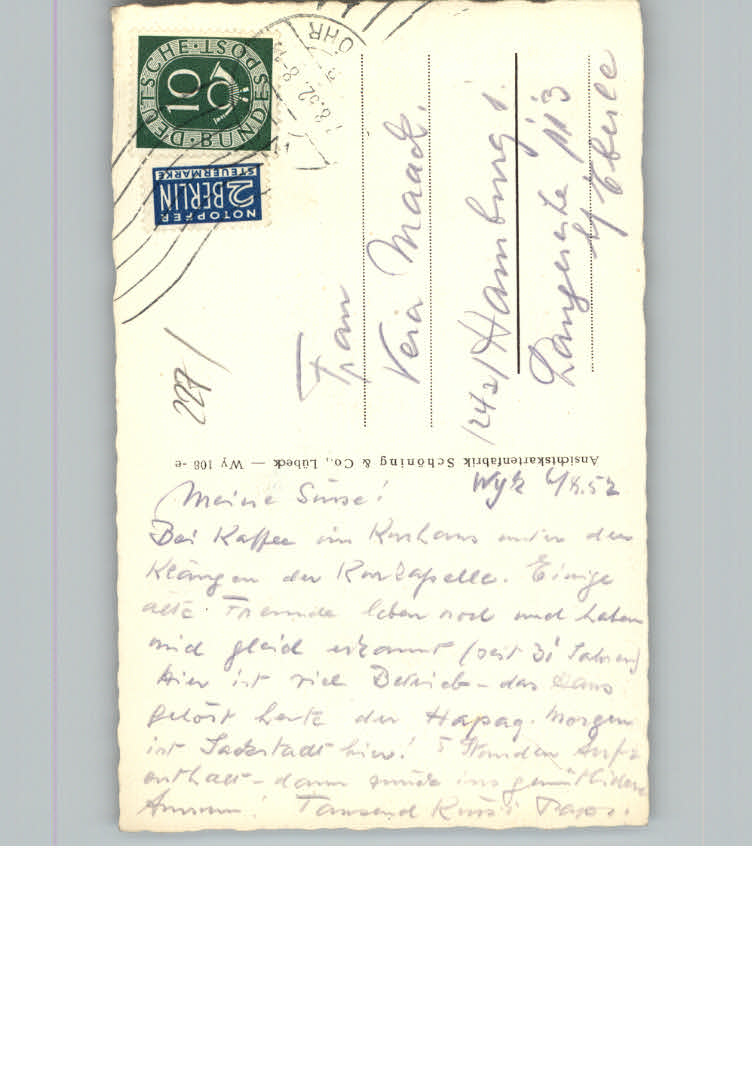 DEUTSCHE BUNDESPOST
10
NOTOPFER
2 BERLIN
STEUERMARKE
8.52.-8
ÖHR
227/
Frau
Vera Maack.
(24a) Hamburg 1.
Langereihe 113
b/ Eberle
Ansichtskartenfabrik Schöning & Co., Lübeck — Wy 108 -e
Wyk 4/8.52
Meine Süsse!
Bei Kaffee im Kurhaus unter den
Klängen der Kurkapelle. Einige
alte Freunde leben noch und haben
mich gleich erkannt (seit 31 Jahren)
Hier ist viel Betrieb - das Haus
gehört heute der Hapag. Morgen
ist hier! 5 Stunden Aufent-
enthalt - dann zurück ins gemütlichere
Amrum! Tausend Küsse Papa.